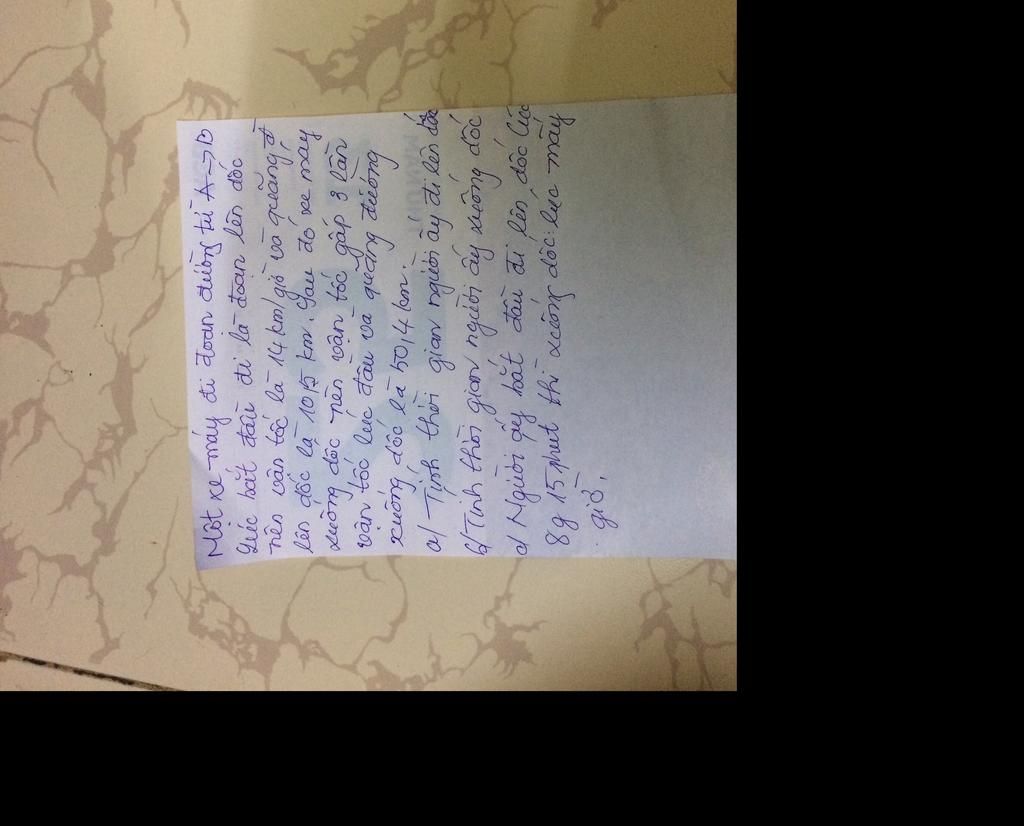 Một xe máy đi đoạn đường từ A → B
Lúc bắt đầu đi là đoạn lên dốc
nên vận tốc là 14 km/giờ và quãng đ
lên dốc là 10,5 km. Sau đó xe máy
xuống dốc nên vận tốc gấp 3 lần
vận tốc lúc đầu và quãng đường
xuống dốc là 50,4 km.
a/ Tính thời gian người ấy đi lên dốc
b/ Tính thời gian người ấy xuống dốc
c/ Người ấy bắt đầu đi lên dốc lúc
8g 15 phút thì xuống dốc lúc mấy
giờ.